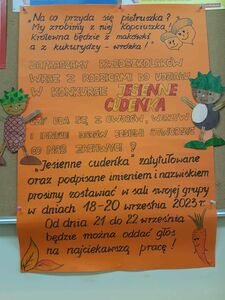 Na co przyda się pietruszka?
My zrobimy z niej kopciuszka!
Królewna będzie z makówki
a z kukurydzy - wróżka!
ZAPRASZAMY PRZEDSZKOLAKÓW
WRAZ Z RODZICAMI DO UDZIAŁU
W KONKURSIE JESIENNE
CUDEŃKA
UDA SIĘ Z OWOCÓW, WARZYW
I INNYCH DARÓW JESIENI STWORZYĆ
CO NAS ZACHWYCI?
"Jesienne cudeńka" zatytułowane
oraz podpisane imieniem i nazwiskiem
prosimy zostawiać w sali swojej grupy
w dniach 18-20 września 2023 r.
Od dnia 21 do 22 września
będzie można oddać głos
na najciekawszą pracę!